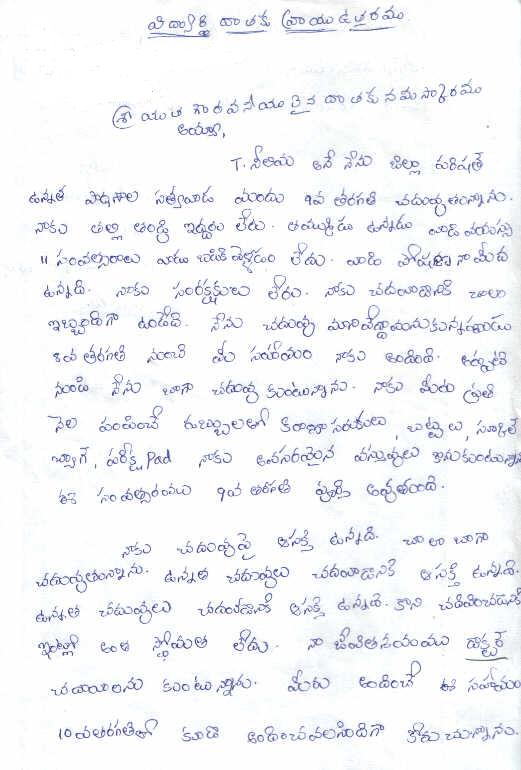 విద్యార్థి దాతకు వ్రాయు ఉత్తరము.
శ్రీ యుత గౌరవనీయులైన దాతకు నమస్కారము
అయ్యా,
T. నీలిమ అనే నేను జిల్లా పరిషత్
ఉన్నత పాఠశాల సత్తివాడ నందు 9వ తరగతి చదువుతున్నాను.
నాకు తల్లి తండ్రి ఇద్దరు లేరు. తమ్ముడు ఉన్నాడు వాడి వయస్సు
11 సంవత్సరాలు వాడు బడికి వెళ్ళడం లేదు. వాడి పోషణ నా మీద
ఉన్నది. నాకు సంరక్షకులు లేరు. నాకు చదవడానికి చాలా
ఇబ్బందిగా ఉండేది. నేను చదువు మానివేద్దామనుకున్నప్పుడు
8వ తరగతి నుంచి మీ సహాయం నాకు అందింది. అప్పటి
నుండి నేను బాగా చదువు కుంటున్నాను. నాకు మీరు ప్రతి
నెల పంపించే డబ్బులతో కిరాణా సరుకులు, బట్టలు, స్కూల్
బ్యాగ్, పరీక్ష Pad నాకు అవసరమైన వస్తువులు కొనుకుంటున్నాను
ఈ సంవత్సరంలు 9వ తరగతి పూర్తి అవుతుంది.
నాకు చదువుపై ఆసక్తి ఉన్నది. చాలా బాగా
చదువుతున్నాను. ఉన్నత చదువులు చదవడానికి ఆసక్తి ఉన్నది.
ఉన్నత చదువులు చదవడానికి ఆసక్తి ఉన్నది. కాని చదివించడానికి
ఇంట్లో అంత స్తోమత లేదు. నా జీవితాశయము డాక్టర్
చదవాలను కుంటున్నాను. మీరు అందించే ఈ సహాయం
10వ తరగతిలో కూడా అందించవలసిందిగా కోరుచున్నాను.